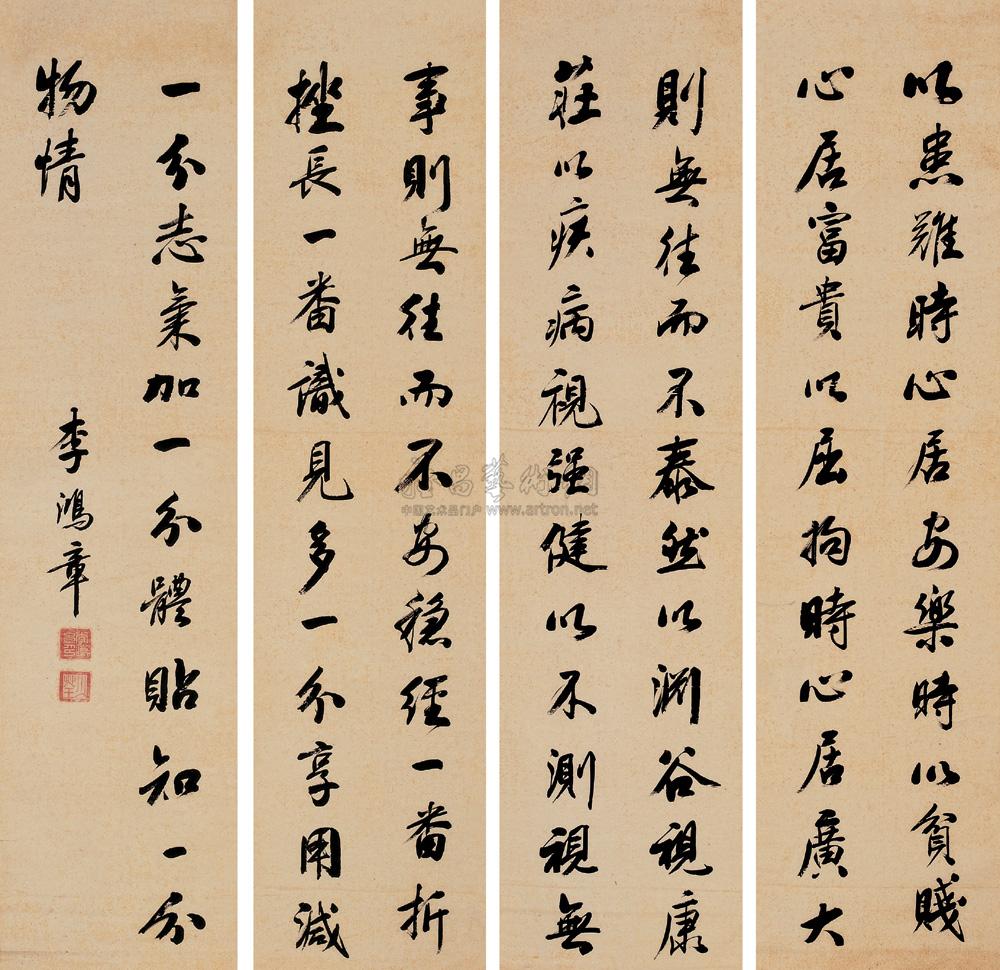 以患難時心居安樂時以貧賤
心居富貴以屈拘時心居廣大
則無往而不泰然以渊谷視康
莊以疾病視强健以不測視無
事則無往而不安穩經一番折
挫長一番識見多一分享用減
一分志氣加一分體貼知一分
物情
李鴻章
雅昌藝術网
中国艺术品门户 www.artron.net